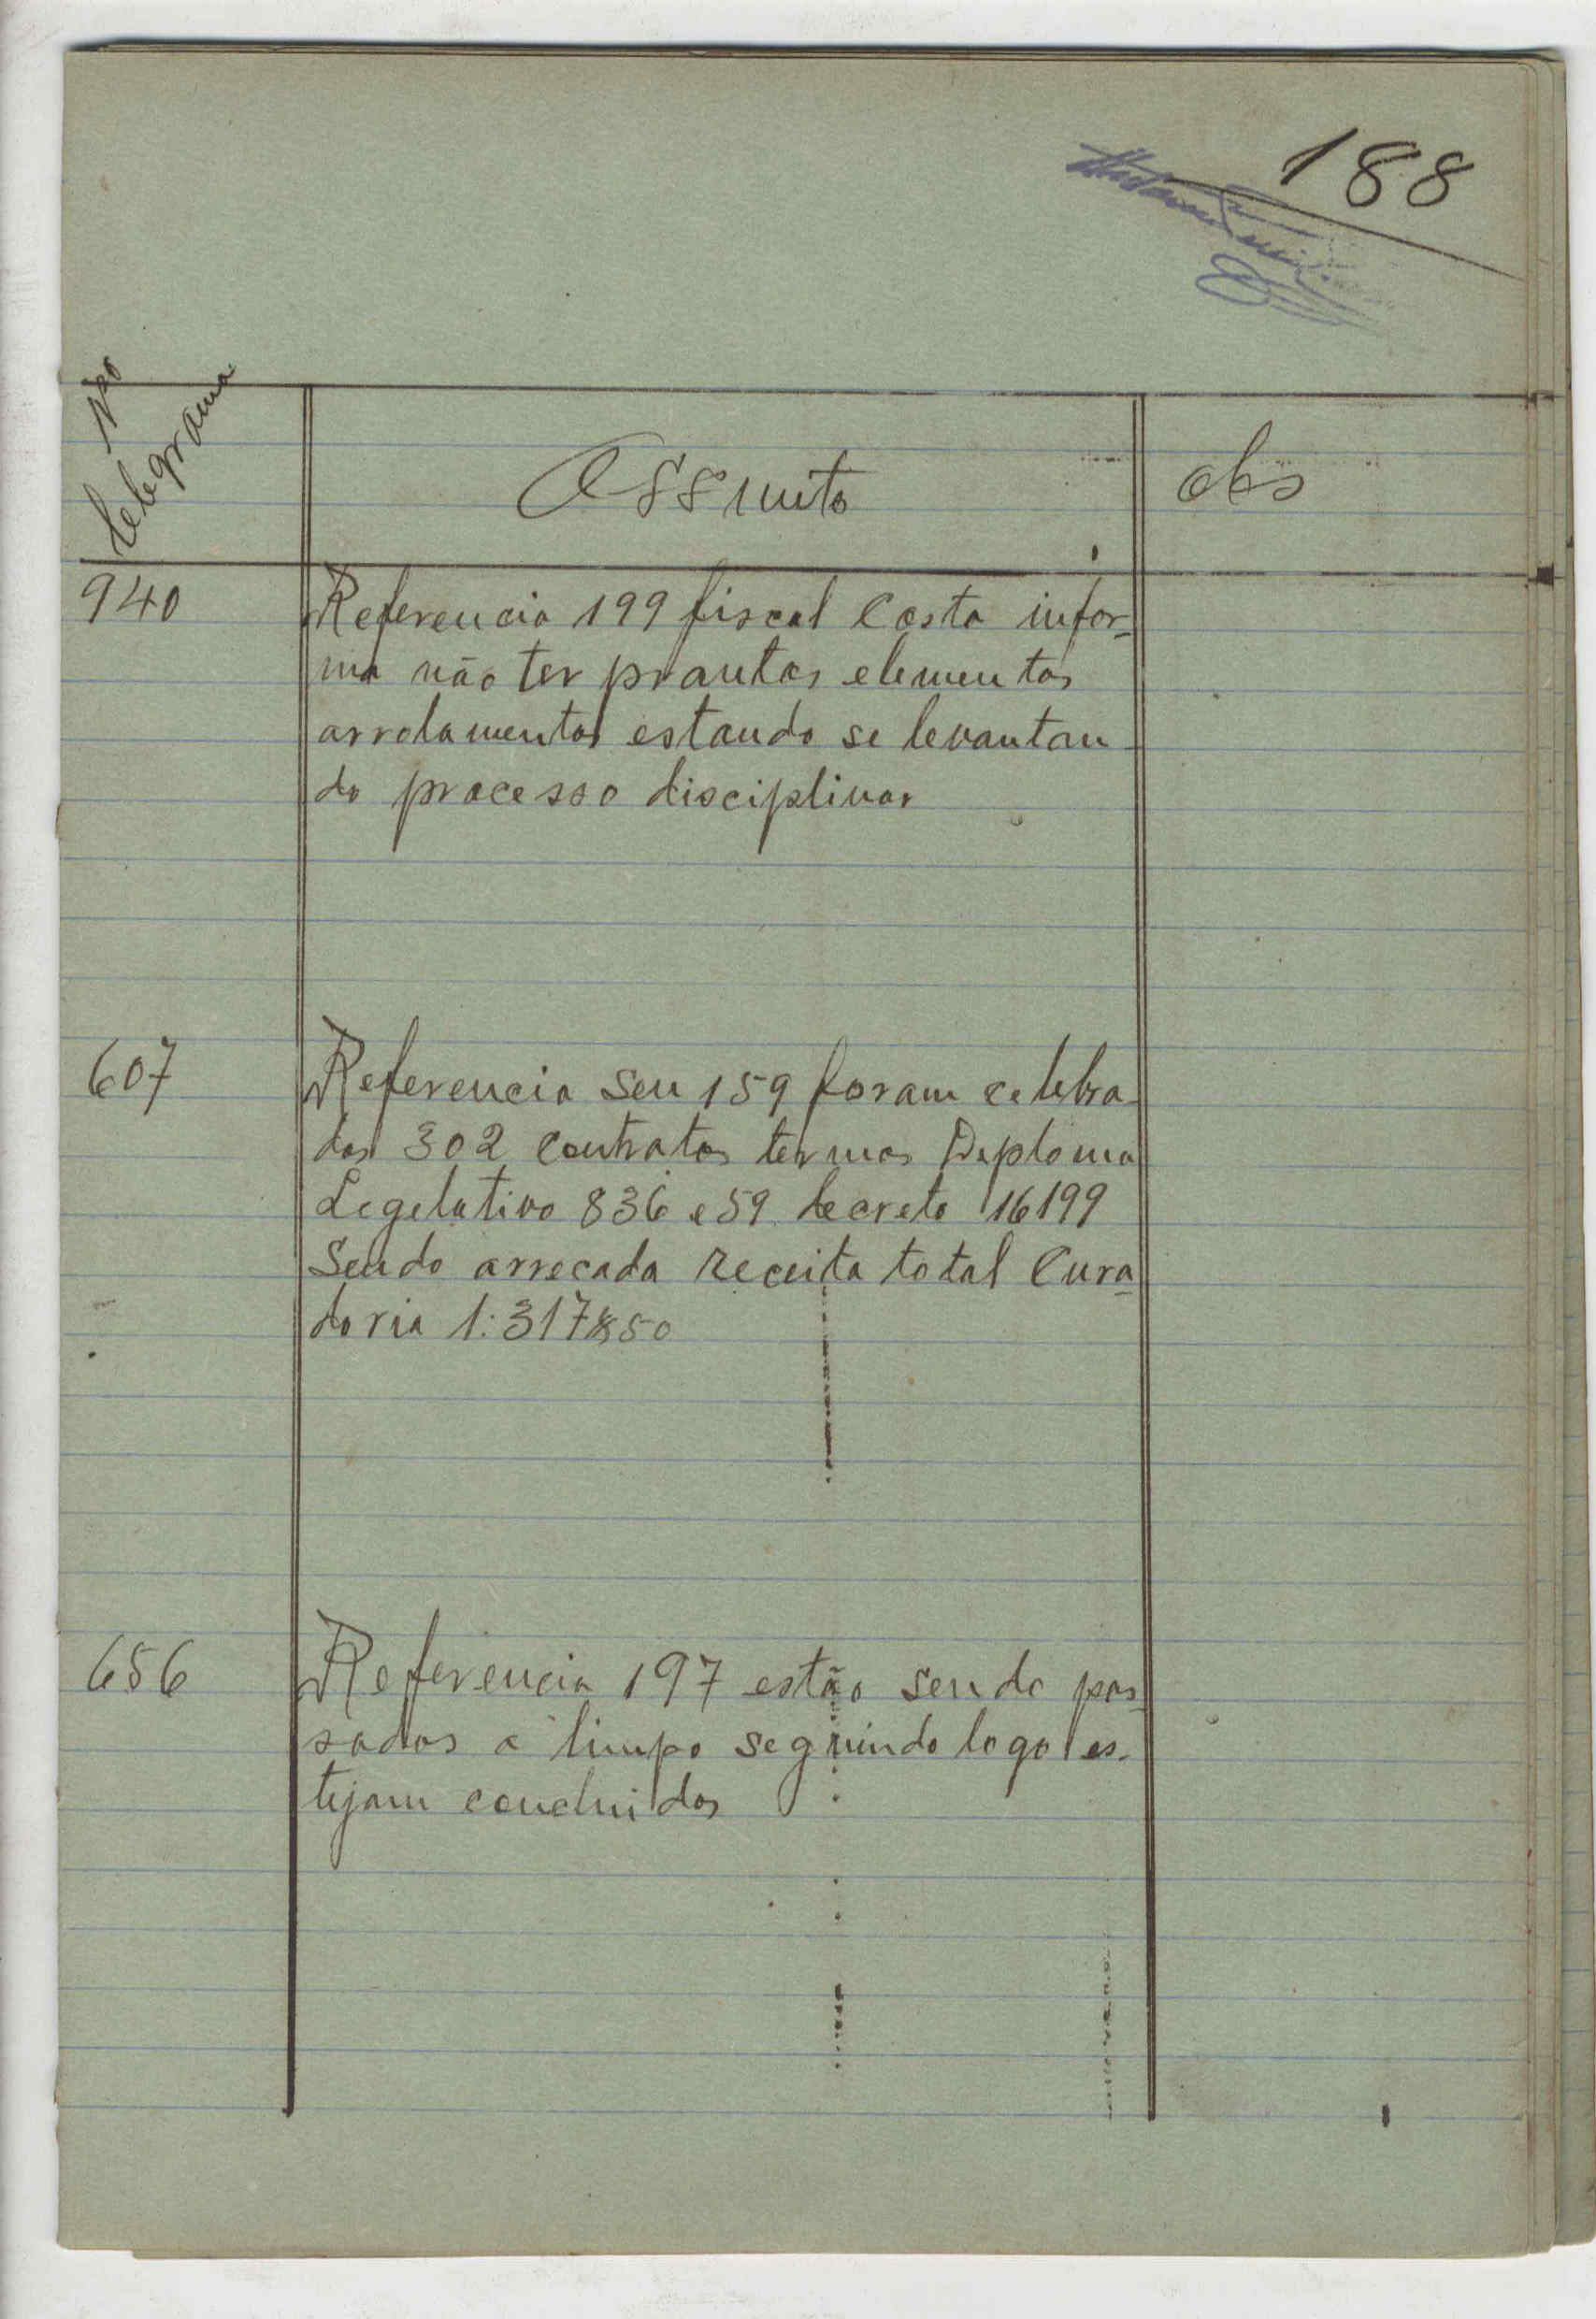 188
Nº
telegrama
Assunto
obs
940
Referencia 199 fiscal Costa infor-
ma não ter prautos elementos
arrolamentos estando se levantan-
do processo disciplinar
607
Referencia Seu 159 foram celebra-
dos 302 contratos termos Diploma
Legelativo 836 e 59 decreto 16199
Sendo arrecada receita total Cura-
doria 1:317$50
656
Referencia 197 estão sendo pas-
sados a limpo seguindo logo es-
tejam concluidos